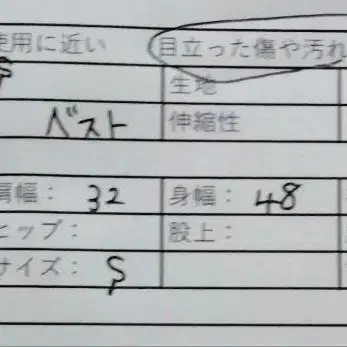 使用に近い 目立った傷や汚れ
S 生地
ベスト 伸縮性
肩幅： 32 身幅： 48
ヒップ： 股上：
サイズ： S